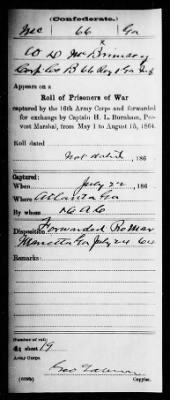 (Confederate.)
Mc 66 Ga
W D Mc
Corp Co B 66 Reg't Ga Inf
Appears on a
Roll of Prisoners of War
captured by the 16th Army Corps and forwarded
for exchange by Captain H. L. Burnham, Pro-
vost Marshal, from May 1 to August 15, 1864.
Roll dated
Not dated, 186
Captured:
When July 22, 186
Where Atlanta Ga
By whom
Disposition Forwarded Pro Mar
Marietta Ga July 24 64
Remarks:
Number of roll:
sheet 19
Army Corps
Geo
Copyist.